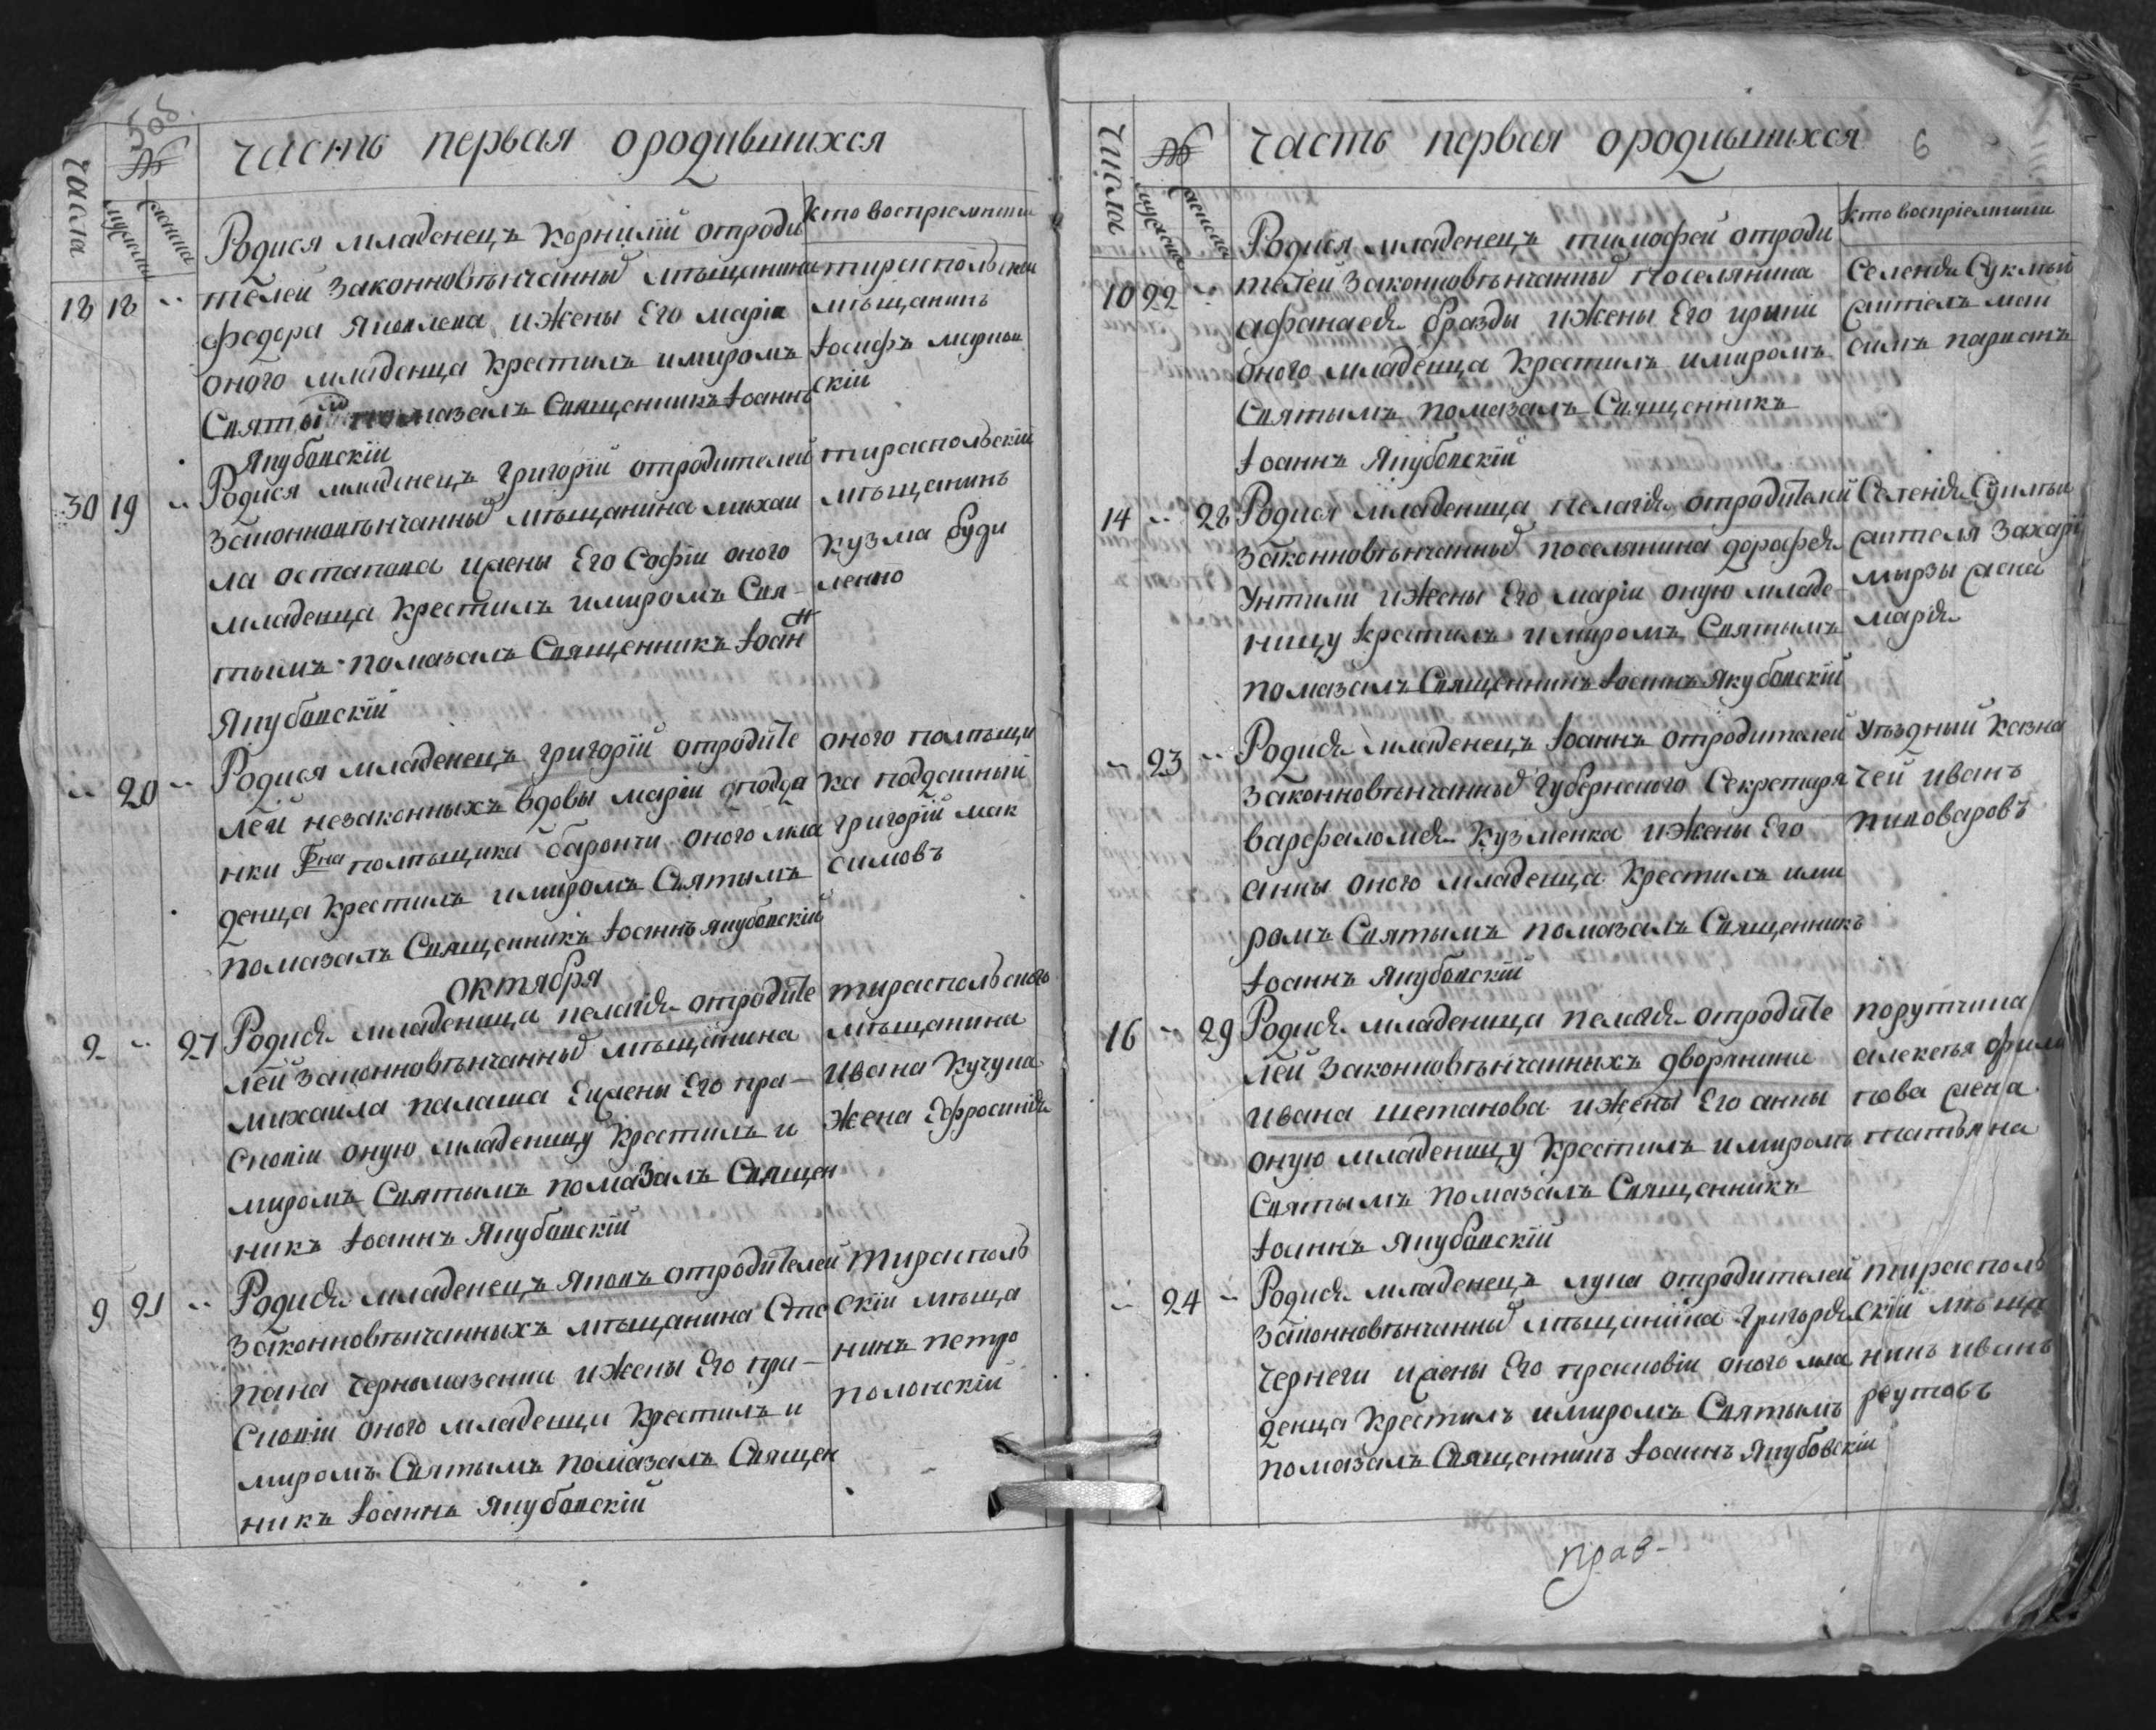 505
Часть первая ородившихся
числа
№
мужеска
женска
кто восприемники
Родися младенецъ Корнилій отроди
18 18 "
телей законновѣнчанныхъ мѣщанина
Федора Яковлева ижены Его маріи
оного младенца крестилъ имиромъ
Святымъ помазалъ Священникъ Іоаннъ
Якубовскій
тираспольскій
мѣщанинъ
Іосифъ
скій
30 19 "
Родися младенецъ Григорій отродителей
законновѣнчанныхъ мѣщанина михаи
ла остапова ижены Его Софіи оного
младенца крестилъ имиромъ Свя-
тымъ помазалъ Священникъ Іоанн
Якубовскій
тираспольскій
мѣщанинъ
кузма буди
ленко
" 20 "
Родися младенецъ григорій отродите
лей незаконныхъ вдовы маріи подда
нки помѣщика барончи оного мла
денца крестилъ имиромъ Святымъ
помазалъ Священникъ Іоаннъ якубовскій
оного помѣщи
ка подданный
григорій мак
симовъ
октября
2 " 27
Родися младеница пелагія отродите
лей законновѣнчанныхъ мѣщанина
михаила палаша Ежены Его пра-
сковіи оную младеницу крестилъ и
миромъ Святымъ помазалъ Священ
никъ Іоаннъ Якубовскій
тираспольского
мѣщанина
Ивана Кучука
жена Ефросинія
9 21 "
Родися младенецъ яковъ отродителей
законновѣнчанныхъ мѣщанина Сте
пана Черномазенка ижены Его пра-
сковіи оного младенца крестилъ и
миромъ Святымъ помазалъ Священ
никъ Іоаннъ Якубовскій
тирасполь
скій мѣща
нинъ петро
полонскій
Часть первая ородившихся
6
числа
№
мужеска
женска
кто восприемники
10 22 "
Родися младенецъ тимофей отроди
телей законновѣнчанныхъ поселянина
афанасія бразды ижены Его ирины
оного младенца крестилъ имиромъ
Святымъ помазалъ Священникъ
Іоаннъ Якубовскій
Селенія Суклеи
житель
14 " 28
Родися младеница пелагія отродителей
законновѣнчанныхъ поселянина дорофея
Унтили ижены Его маріи оную младе-
ницу крестилъ имиромъ Святымъ
помазалъ Священникъ Іоаннъ Якубовскій
Селенія Суклеи
жителя Захарі
мырзы жена
марія
" 23 "
Родися младенецъ Іоаннъ отродителей
законновѣнчанныхъ Губернского Секретаря
варфаломея Кузменка ижены Его
анны оного младенца крестилъ ими
ромъ Святымъ помазалъ Священникъ
Іоаннъ Якубовскій
Уѣздный казна
чей иванъ
пивоваровъ
16 " 29
Родися младеница пелагія отродите
лей законновѣнчанныхъ дворянина
ивана шетанова ижены Его анны
оную младеницу крестилъ имиромъ
Святымъ помазалъ Священникъ
Іоаннъ Якубовскій
порутчика
алексѣя фили
пова жена
татьяна
" 24 "
Родися младенецъ лука отродителей
законновѣнчанныхъ мѣщанина григорія
чернеги ижены Его прасковіи оного мла
денца крестилъ имиромъ Святымъ
помазалъ Священникъ Іоаннъ Якубовскій
тирасполь
скій мѣща
нинъ иванъ
реутовъ
прав-